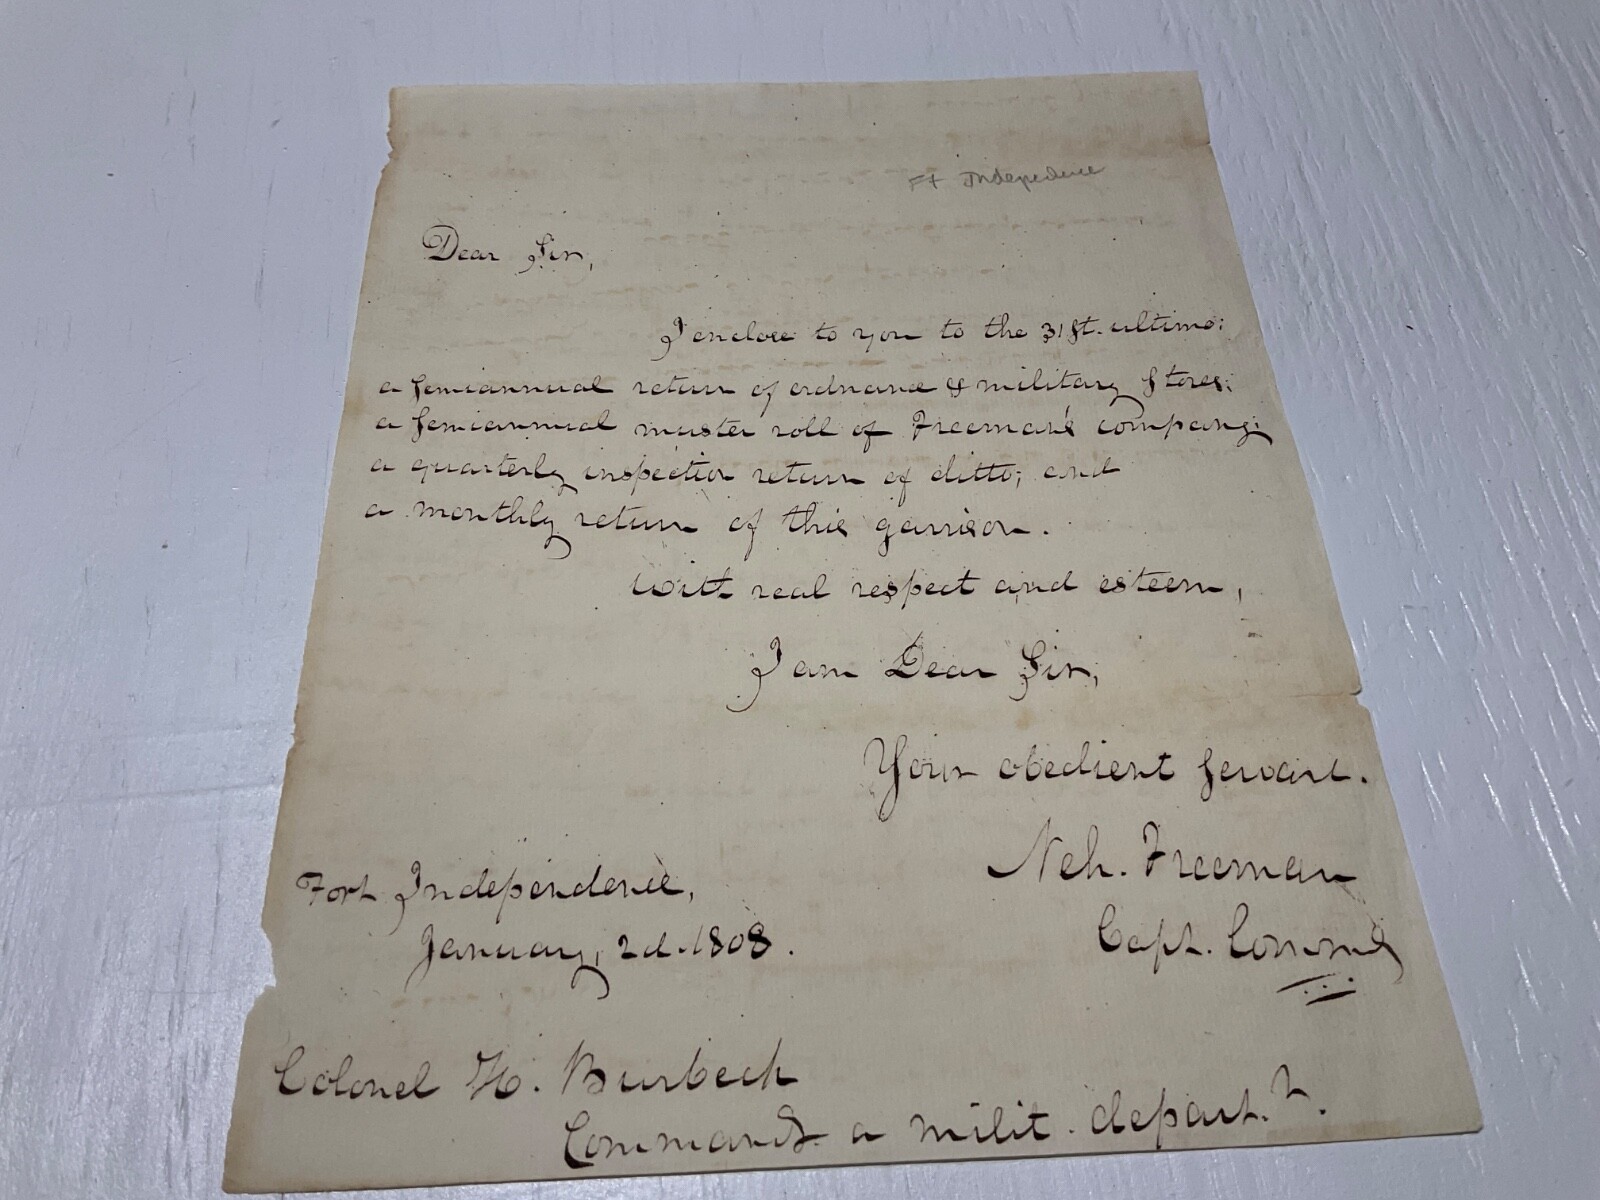 Ft Independence
Dear Sir,
I enclose to you to the 31st. ultimo:
a semiannual return of ordnance & military stores;
a semiannual muster roll of Freeman's company;
a quarterly inspection return of ditto; and
a monthly return of this garrison.
With real respect and esteem,
I am Dear Sir,
Your obedient servant.
Neh. Freeman
Capt. Commd
Fort Independence,
January, 2d. 1808.
Colonel H. Burbeck
Commandg. a milit. depart.t.